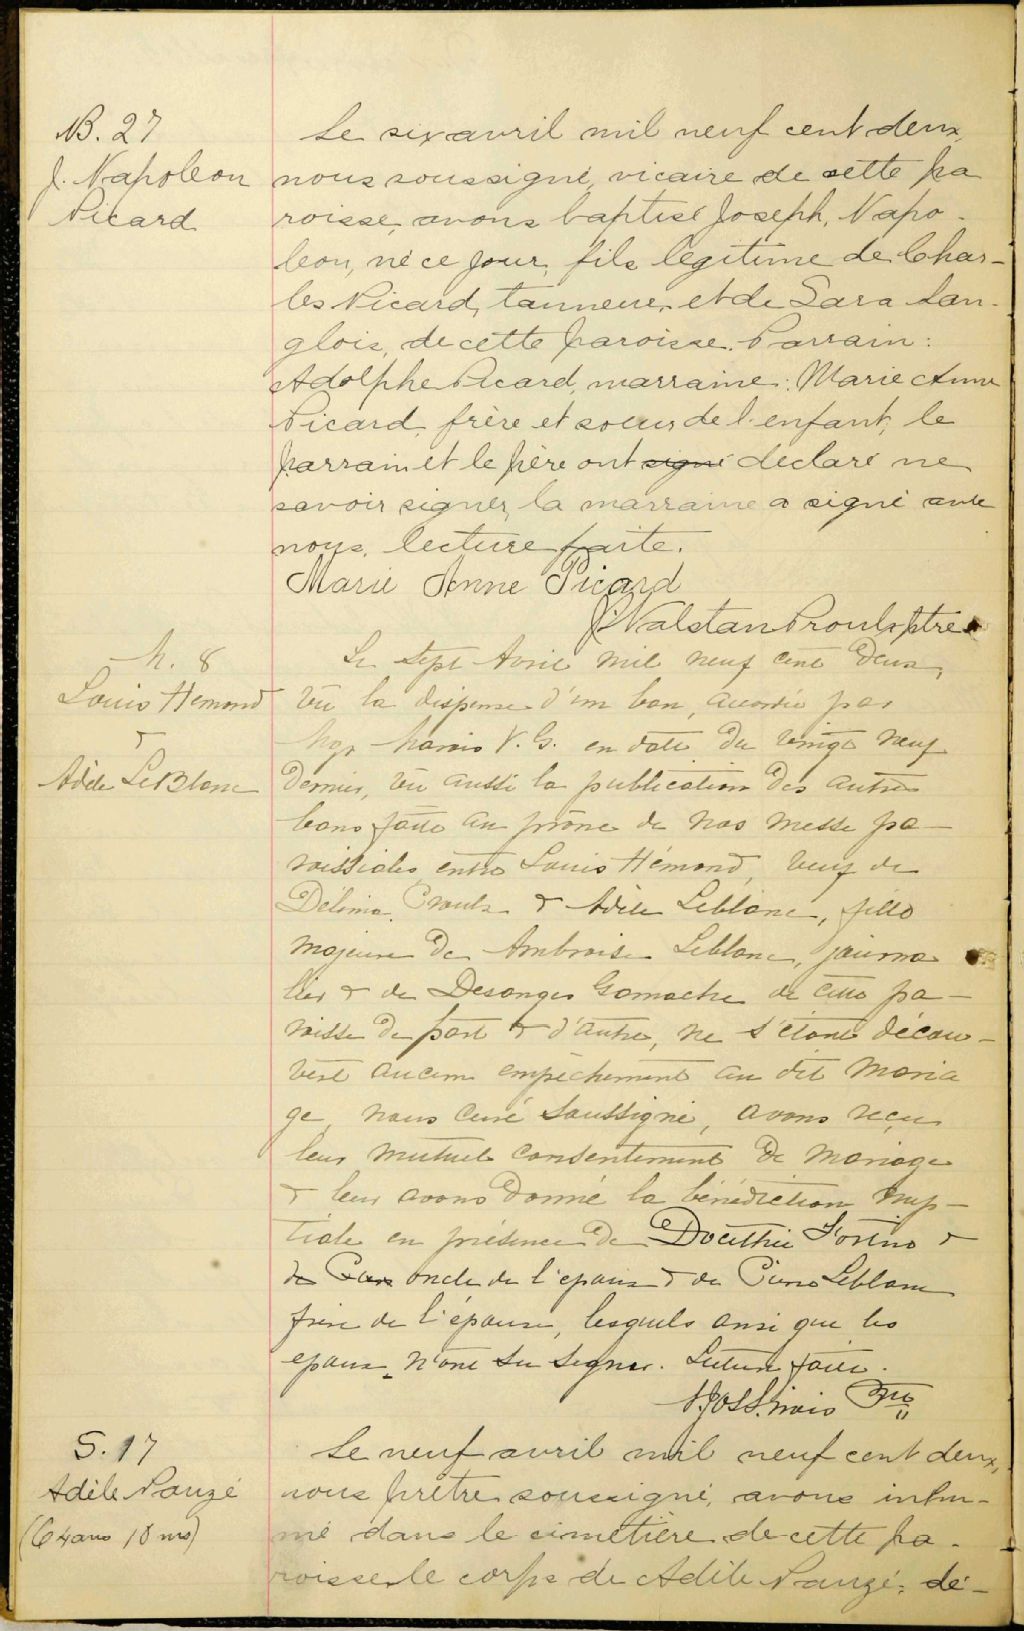 B. 27
J. Napoleon
Picard
Le six avril mil neuf cent deux,
nous soussigné, vicaire de cette pa
roisse, avons baptisé Joseph, Napo-
leon, né ce jour, fils légitime de Char-
les Picard, tanneur, et de Sara Lan-
glois, de cette paroisse. Parrain:
Adolphe Picard, marraine: Marie Anne
Picard, frère et soeur de l'enfant, le
parrain et le père ont signé déclaré ne
savoir signer, la marraine a signé avec
nous. Lecture faite.
Marie Anne Picard
J. Valstan Proulx ptre
M. 8
Louis Hémond
&
Adèle LeBlanc
Le sept Avril mil neuf cent deux,
vu la dispense d'un ban, accordée par
Mgr Marois V. G. en date du vingt neuf
dernier, vu aussi la publication des autres
bans faite au prône de nos messe pa-
roissiales entre Louis Hémond, veuf de
Délima Proulx & Adèle Leblanc, fille
majeure de Ambroise Leblanc, journa
lier & de Desanges Gamache de cette pa-
roisse de part & d'autre, ne s'étant décou-
vert aucun empêchement au dit maria
ge, nous curé soussigné, avons reçu
leur mutuel consentement de mariage
& leur avons donné la bénédiction nup-
tiale en présence de Docithée Fortin &
de oncle de l'époux & de Pierre Leblanc
frère de l'épouse, lesquels ainsi que les
époux n'ont su signer. Lecture faite.
S. 17
Adèle Pauzé
(64 ans 10 ms)
Le neuf avril mil neuf cent deux,
nous prêtre soussigné, avons inhu-
mé dans le cimetière de cette pa-
roisse le corps de Adèle Pauzé, dé-